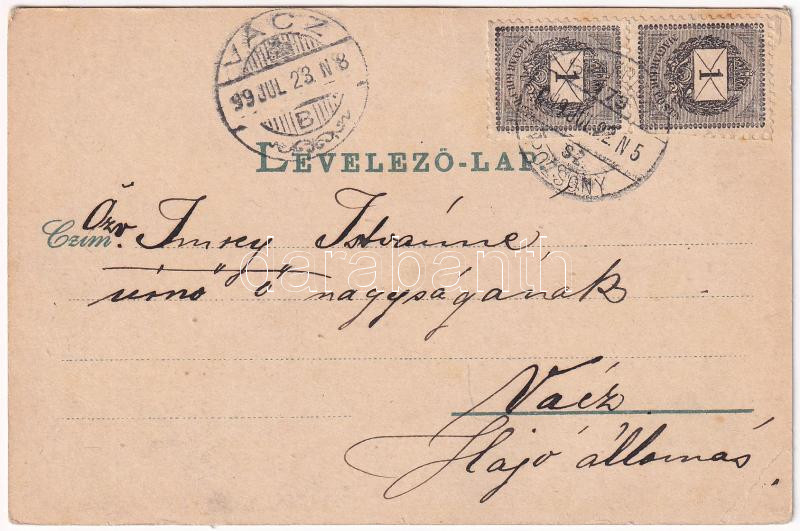 VÁCZ
99 JUL 23. N 8
B
1
1
POZSONY
LEVELEZŐ-LAP.
Czím
Özv. Imrey Istvánné
úrnő ő nagyságának
Vácz
Hajó állomás.
darabanth